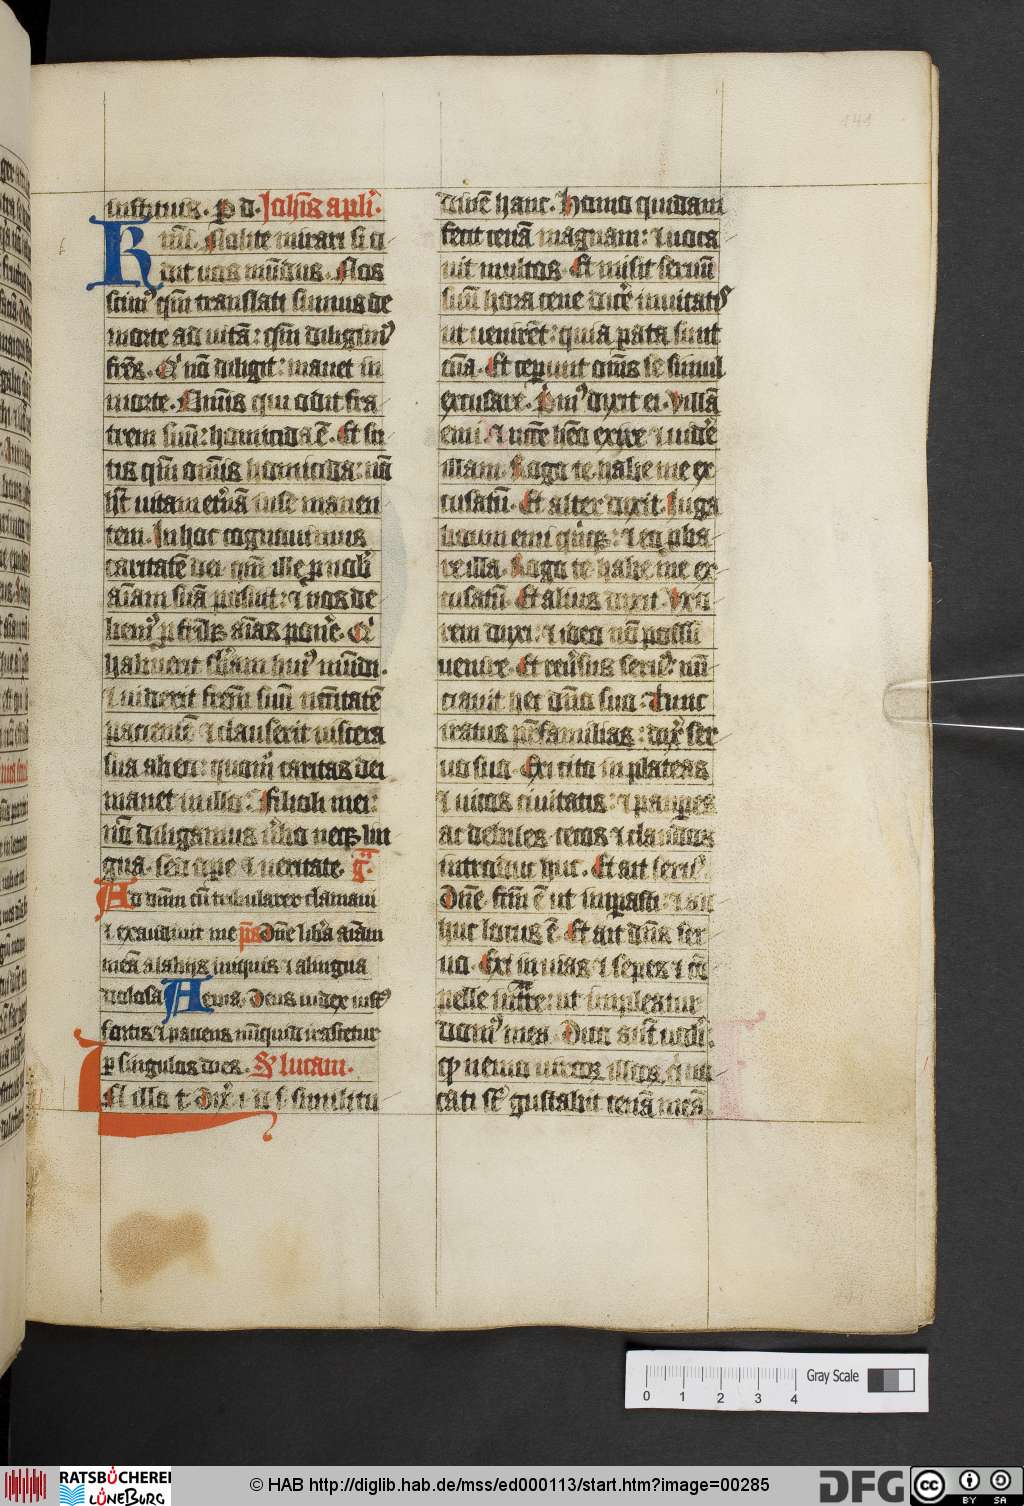 141
instituis. P d. Joh̅is apl̅i.
Kmi. Nolite mirari si o
dit uos mu̅dus. Nos
scim⁹ qm̅ translati sumus de
morte ad uita̅: qm̅ diligim⁹
fr̅es. Qi no̅ diligit: manet in
morte. Om̅is qui odit fra
trem suu̅: homicida e̅. Et sci
tis qm̅ om̅is homicida: no̅
ht̅ uitam et̅na̅ in se manen
tem. In hoc cognouimus
caritate̅ dei qm̅ ille p nob̅
ai̅am sua̅ posuit: ⁊ nos de
bem⁹ p fr̅ibꝫ ai̅as pone̅. Qi
habuerit sb̅am hui⁹ mu̅di.
⁊ uiderit frem̅ suu̅ nec̅itate̅
pacient̅e ⁊ clauserit uiscera
sua ab eo: quom̅ caritas dei
manet in illo: Filioli mei:
no̅ diligamus ub̅o neqꝫ lin
gua. sed ope ⁊ ueritate. Gͣ
Ad dnm̅ cu̅ tribularer clamaui
⁊ exaudiuit me ps̅ Dn̅e lib̅a ai̅am
mea̅ a labijs iniquis ⁊ a lingua
dolosa Aeuia. Deus iudex iust⁹
fortis ⁊ paciens nu̅quid irascetur
p singulos dies. S. lucam.
In illo t. Dix̅ i. d. s. similitu
dine̅ hanc. Homo quidam
fecit cena̅ magnam: ⁊ uoca
uit multos. Et misit seruu̅
suu̅ hora cene dice̅ inuitatis
ut uenire̅t: quia pata sunt
o̅ia. Et ceperunt om̅s se simul
excusare. Pm⁹ dixit ei. Villa̅
emi. ⁊ nec̅e h̅eo exire ⁊ uide̅
illam. Rogo te habe me ex
cusatu̅. Et alter dixit. Iuga
boum emi qi̅nqꝫ: ⁊ eo pba
re illa. Rogo te habe me ex
cusatu̅. Et alius dixit. Vxo
rem duxi: ⁊ ideo no̅ possu̅
uenire. Et reu̅sus seru⁹: nu̅
ciauit hec dn̅o suo. Tunc
iratus p̅rfamilias: dix̅ ser
uo suo. Exi cito in plateas
⁊ uicos ciuitatis: ⁊ paupes
ac debiles. cecos ⁊ claudos
introduc huc. Et ait seru⁹.
Dn̅e. fcm̅ e̅ ut impasti: ⁊ ad
huc locus e̅. Et ait dn̅s ser
uo. Exi in uias ⁊ sepes ⁊ co̅
pelle intrare: ut impleatur
dom⁹ mea. Dico aut̅ uob̅:
qꝫ nemo uiroꝝ illoꝝ qi uo
cati s̅t gustabit cena̅ mea̅
0 1 2 3 4
Gray Scale
RATSBÜCHEREI LÜNEBURG
© HAB http://diglib.hab.de/mss/ed000113/start.htm?image=00285
DFG
cc BY SA